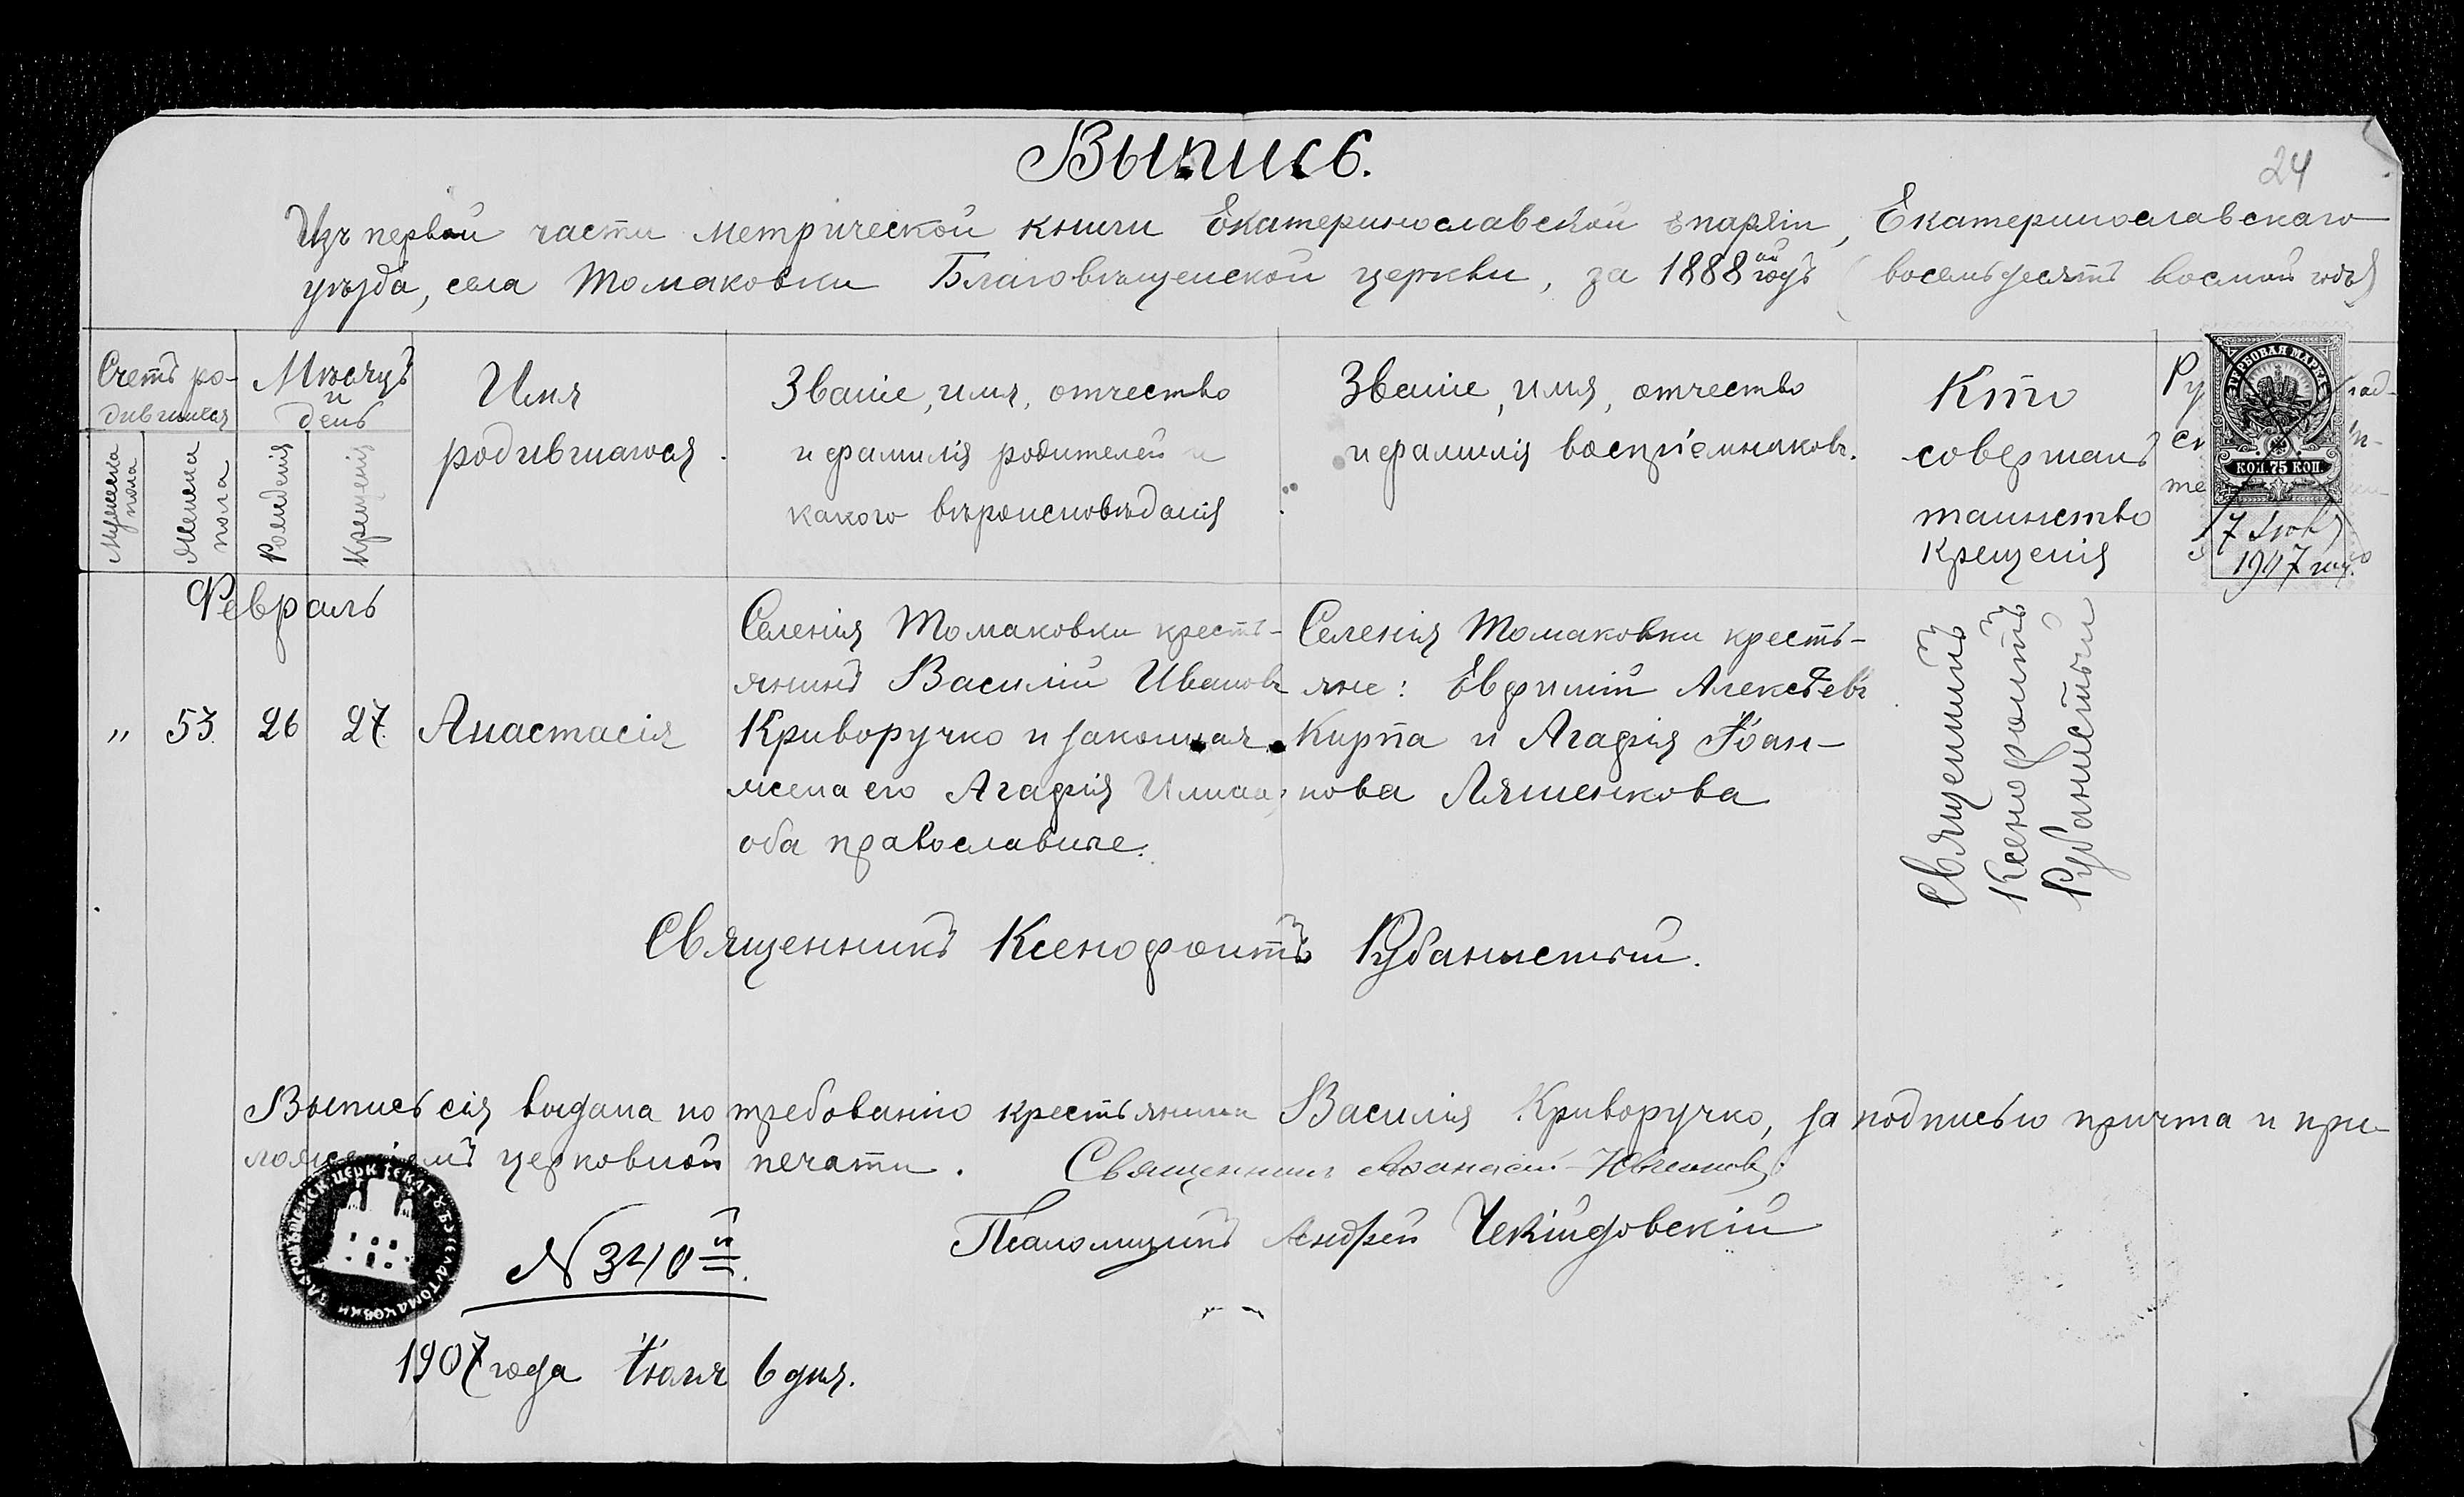 24
Выпись.
Изъ первой части метрической книги Екатеринославской епархіи, Екатеринославскаго
уѣзда, села Томаковки Благовѣщенской церкви, за 1888ой годъ (восемьдесятъ восьмой годъ)
Счетъ ро-
дившихся
Мужеска
пола
Женска
пола
Мѣсяцъ
и
день
Рожденія
Крещенія
Имя
родившагося.
Званіе, имя, отчество
и фамилія родителей и
какого вѣроисповѣданія
Званіе, имя, отчество
и фамилія воспріемниковъ.
Кто
совершалъ
таинство
крещенія
Ру
ГЕРБОВАЯ МАРКА
КОП. 75 КОП.
1907
Февраль
„ 53. 26 27. Анастасія
Селенія Томаковки кресть-
янинъ Василій Ивановъ
Криворучко и законная
жена его Агафія
оба православные.
Селенія Томаковки кресть-
яне: Евфимій Алексѣевъ
Кирпа и Агафія Іоан-
нова Ляшенкова
Священникъ
Ксенофонтъ
Рубанистый
Священникъ Ксенофонтъ Рубанистый.
Выпись сія выдана по требованію крестьянина Василія Криворучко, за подписью причта и при-
ложеніемъ церковной печати. Священникъ Афанасій
Псаломщикъ Андрей
№ 340й.
1907 года Іюля 6 дня.